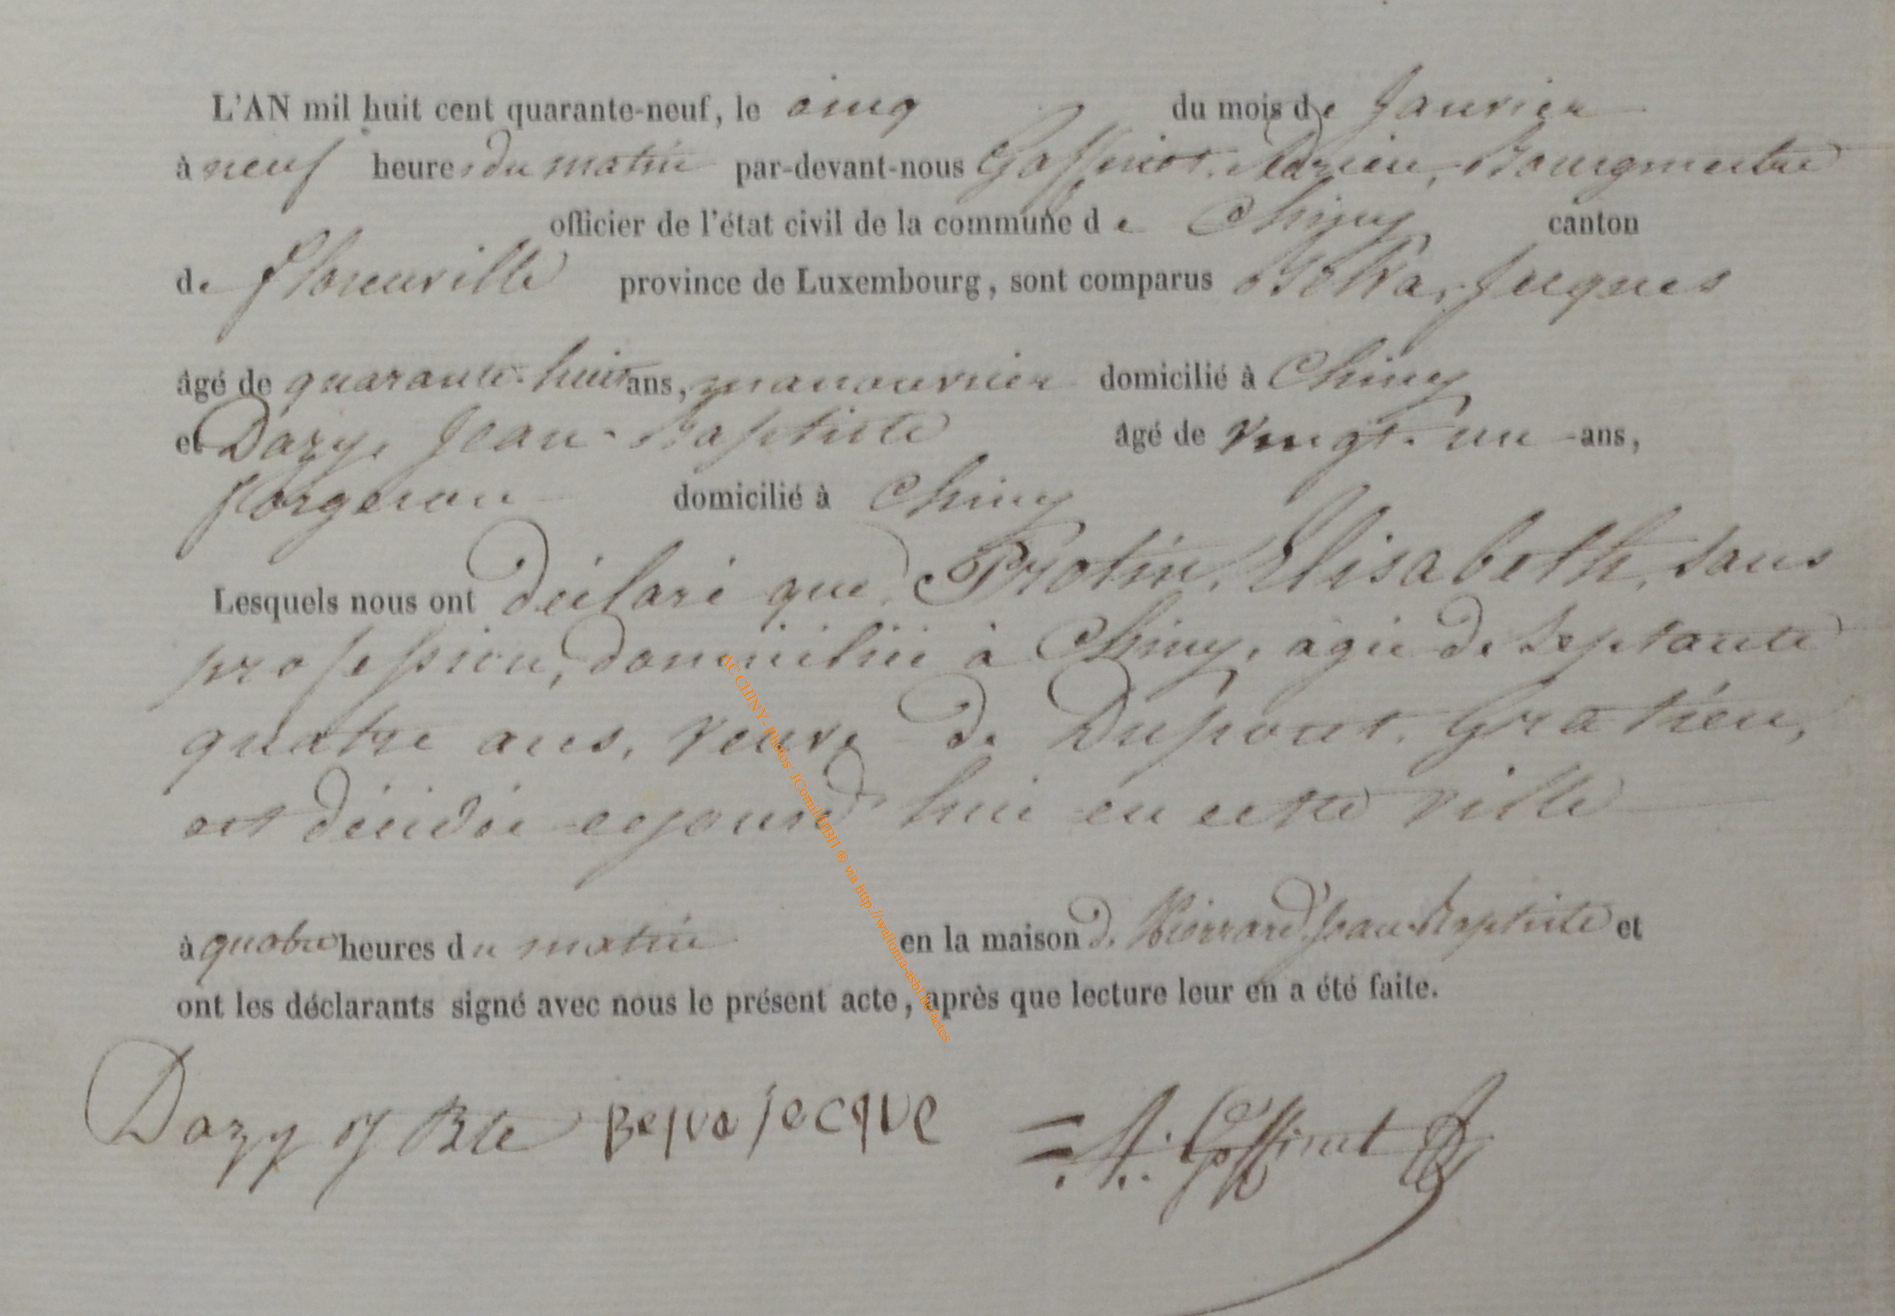 L'AN mil huit cent quarante-neuf, le cinq du mois de Janvier
à neuf heures du matin par-devant-nous Goffinet, Adrien, Bourgmestre
officier de l'état civil de la commune de Chiny canton
de Florenville province de Luxembourg, sont comparus Belva, Jacques
âgé de quarante-huit ans, manouvrier domicilié à Chiny
et Dazy, Jean-Baptiste âgé de vingt-un ans,
forgeron domicilié à Chiny
Lesquels nous ont déclaré que Protin, Elisabeth, sans
profession, domiciliée à Chiny, agée de septante
quatre ans, veuve de Dupont, Gratien,
est décédée aujourd'hui en cette ville
à quatre heures du matin en la maison de Pierrard Jean-Baptiste et
ont les déclarants signé avec nous le présent acte, après que lecture leur en a été faite.
Dazy J Bte Belva jecque A. Goffinet
AC CHINY- Photos